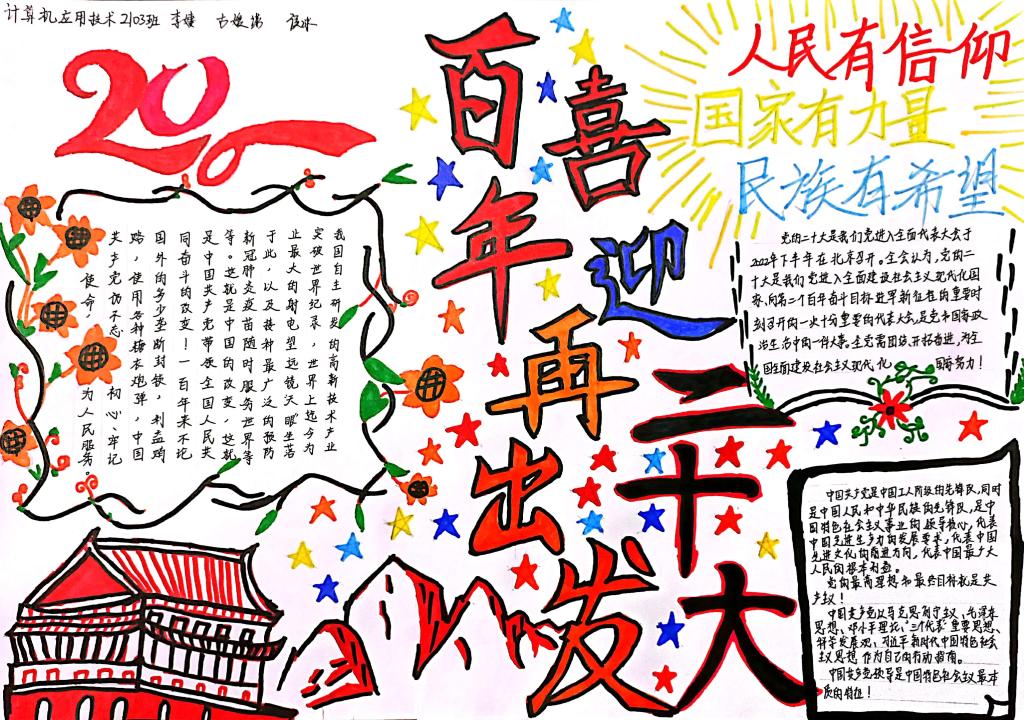 计算机应用技术2103班 李
20
百年再出发
喜迎二十大
人民有信仰
国家有力量
民族有希望
我国自主研发的高新技术产业
突破世界纪录，世界上迄今为
止最大的射电望远镜天"眼"坐落
于此，以及接种最广泛的预防
新冠肺炎疫苗随时服务世界等
等。这就是中国的改变，这就
是中国共产党带领全国人民共
同奋斗的改变！一百年来不论
国外的多少垄断封锁，利益
赂，使用各种糖衣炮弹，中国
共产党仍不忘初心、牢记
使命，为人民服务。
党的二十大是我们党进入全面代表大会于
2022年下半年在北京召开。全会认为，党的二
十大是我们党进入全面建设社会主义现代化国
家、向第二个百年奋斗目标进军新征程的重要时
刻召开的一次十分重要的代表大会，是党和国家政
治生活中的一件大事。全党要团结、开拓奋进，为全
国全面建设社会主义现代化国家努力！
中国共产党是中国工人阶级的先锋队，同时
是中国人民和中华民族的先锋队，是中
国特色社会主义事业的领导核心，代表
中国先进生产力的发展要求，代表中国
先进文化的前进方向，代表中国最广大
人民的根本利益。
党的最高理想和最终目标就是共
产主义！
中国共产党以马克思列宁主义、毛泽东
思想、邓小平理论、"三个代表"重要思想、
科学发展观、习近平新时代中国特色社会
主义思想作为自己的行动指南。
中国共产党领导是中国特色社会主义最本
质的特征！